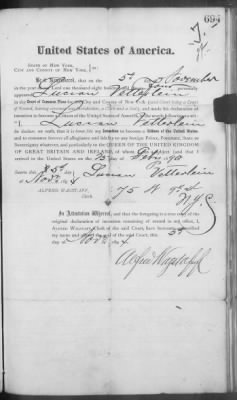 694
United States of America.
STATE OF NEW YORK,
CITY AND COUNTY OF NEW YORK,
Be it Remembered, that on the 5th day of November
in the year of our Lord one thousand eight hundred and ninety four personally
appeared Lucian
in the Court of Common Pleas for the City and County of New York (said Court being a Court
of Record, having common law jurisdiction, a Clerk and a Seal), and made his declaration of
intention to become a citizen of the United States of America, in the words following:
I, Lucian
do declare on oath, that it is bona fide my intention to become a Citizen of the United States,
and to renounce forever all allegiance and fidelity to any foreign Prince, Potentate, State or
Sovereignty whatever, and particularly to the QUEEN OF THE UNITED KINGDOM
OF GREAT BRITAIN AND IRELAND, of whom I am a subject and that I
arrived in the United States on the 15 day of
Sworn this 5th
Lucian
ALFRED WAGSTAFF,
Clerk.
75
N.Y.C.
In Attestation Whereof, and that the foregoing is a true copy of the
original declaration of intention remaining of record in my office, I,
ALFRED WAGSTAFF, Clerk of the said Court, have hereunto subscribed
my name and affixed the seal of the said Court, this 5th
day of Nov. 1894.
Alfred Wagstaff